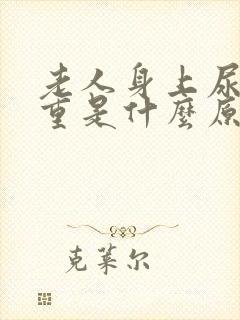 老人身上尿
重是什麼原
克莱尔